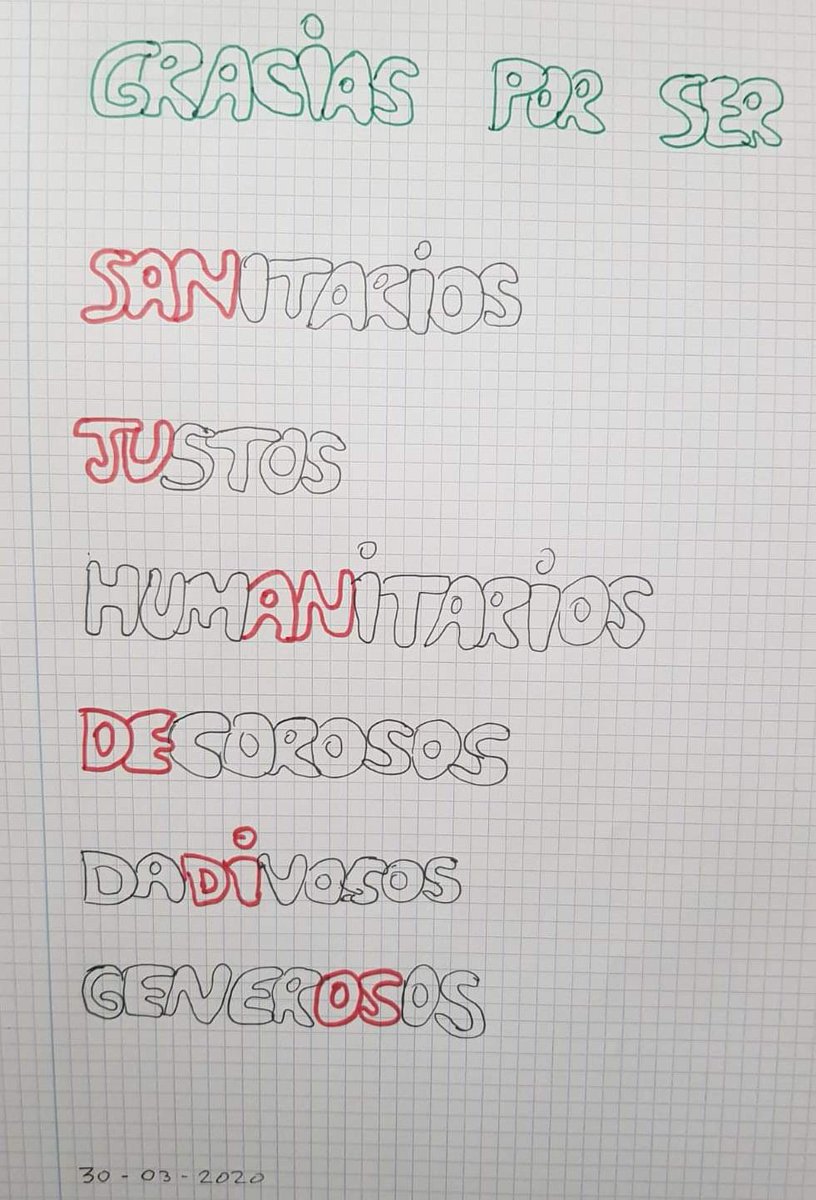 GRACiAS POR SER
SANITARiOS
JUSTOS
HUMANiTARiOS
DECOROSOS
DADiVOSOS
GENEROSOS
30-03-2020